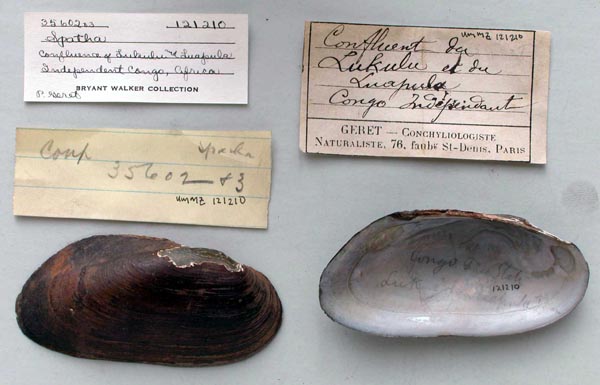 35602 23 121210
Spatha
Confluence of Lukulu & Luapula
Independent Congo, Africa
BRYANT WALKER COLLECTION
P. Geret
UMMZ 121210
Confluent du
Lukulu et du
Luapula
Congo Indépendant
GERET — CONCHYLIOLOGISTE
NATURALISTE, 76, faubg St-Denis, PARIS
Conf Spatha
35602—83
UMMZ 121210
Congo
Luk
121210